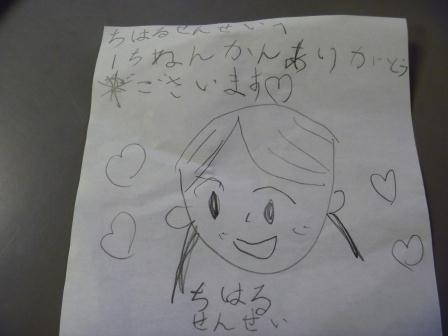 ちはるせんせいへ
1ちねんかんありがとう
ございます♡
ちはる
せんせい